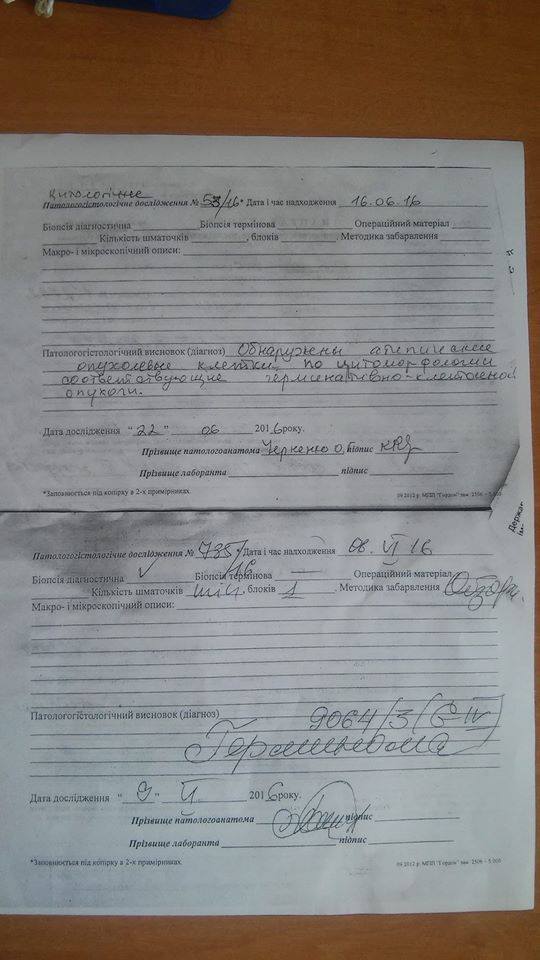 Цитологічне
Патологогістологічне дослідження № 53/16* Дата і час надходження 16.06.16
Біопсія діагностична Біопсія термінова Операційний матеріал
Кількість шматочків , блоків . Методика забарвлення
Макро- і мікроскопічний описи:
Патологогістологічний висновок (діагноз) Обнаружены атипические
опухолевые клетки, по цитоморфологии
соответствующие герминативно-клеточной
опухоли.
Дата дослідження "22" 06 2016 року.
Прізвище патологоанатома Черненко О. підпис
Прізвище лаборанта підпис
*Заповнюється під копірку в 2-х примірниках.
09 2012 р. МПП "Гордон" зам. 2506 – 5 000
Держав
Патологогістологічне дослідження № 735/16 * Дата і час надходження 08. VI 16
Біопсія діагностична V Біопсія термінова — Операційний матеріал
Кількість шматочків , блоків 1 . Методика забарвлення
Макро- і мікроскопічний описи:
Патологогістологічний висновок (діагноз) 9064/3 (G-IV)
Герминома
Дата дослідження "9" VI 2016 року.
Прізвище патологоанатома підпис
Прізвище лаборанта підпис
*Заповнюється під копірку в 2-х примірниках.
09 2012 р. МПП "Гордон" зам. 2506 – 5 000